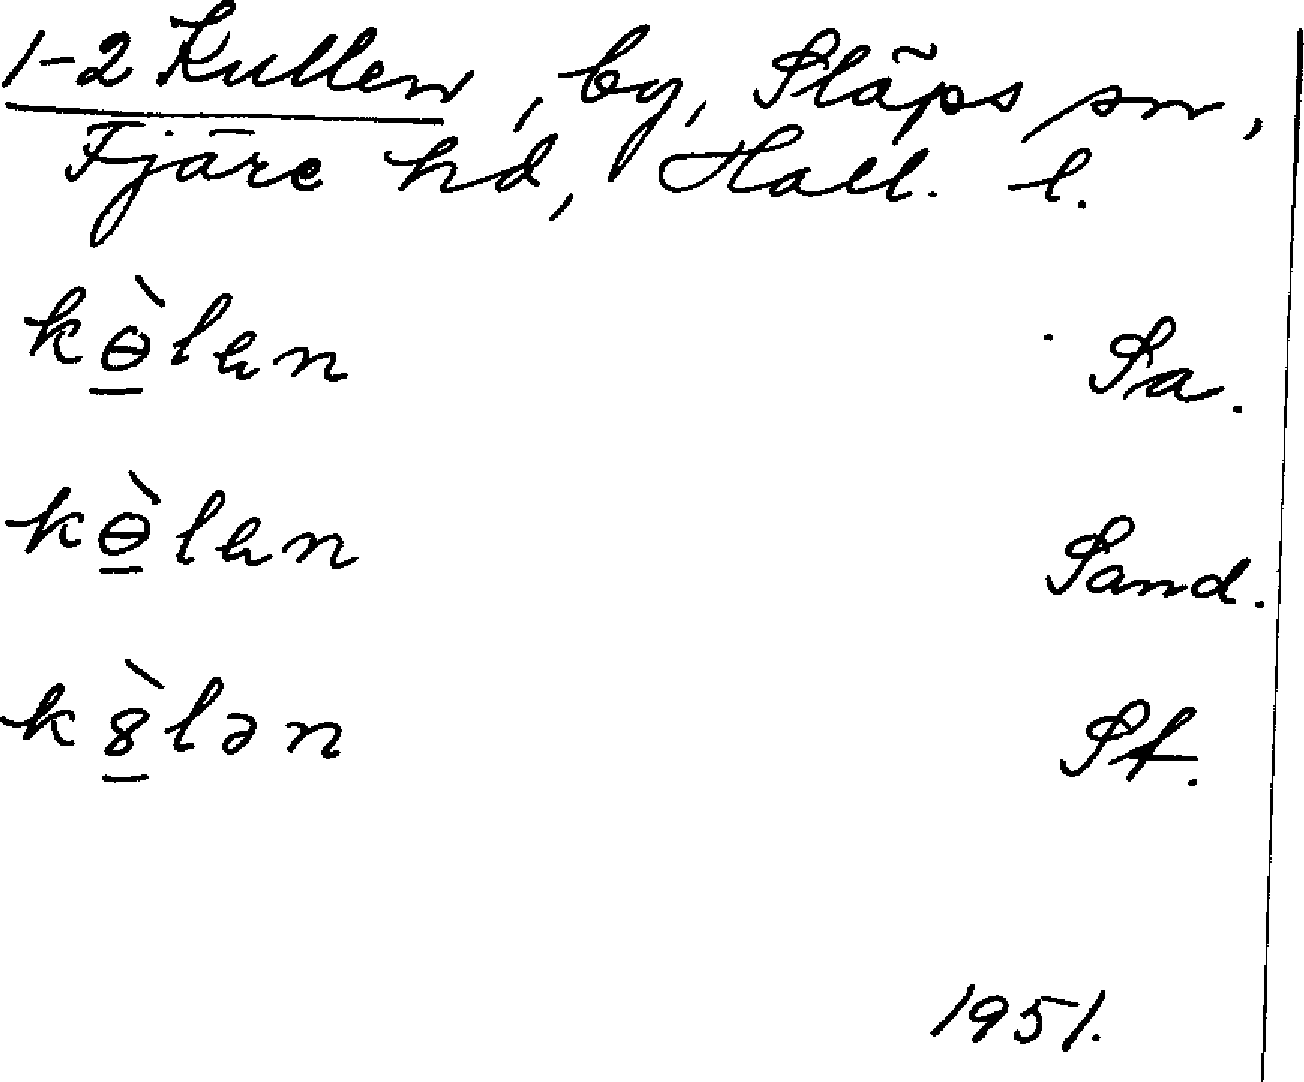 1-2 Kullen, by, Släps sn,
Fjäre hd, Hall. l.
kɵ̲̀lɐn Sa.
kɵ̲̀lɐn Sand.
k8̲̀lən St.
1951.